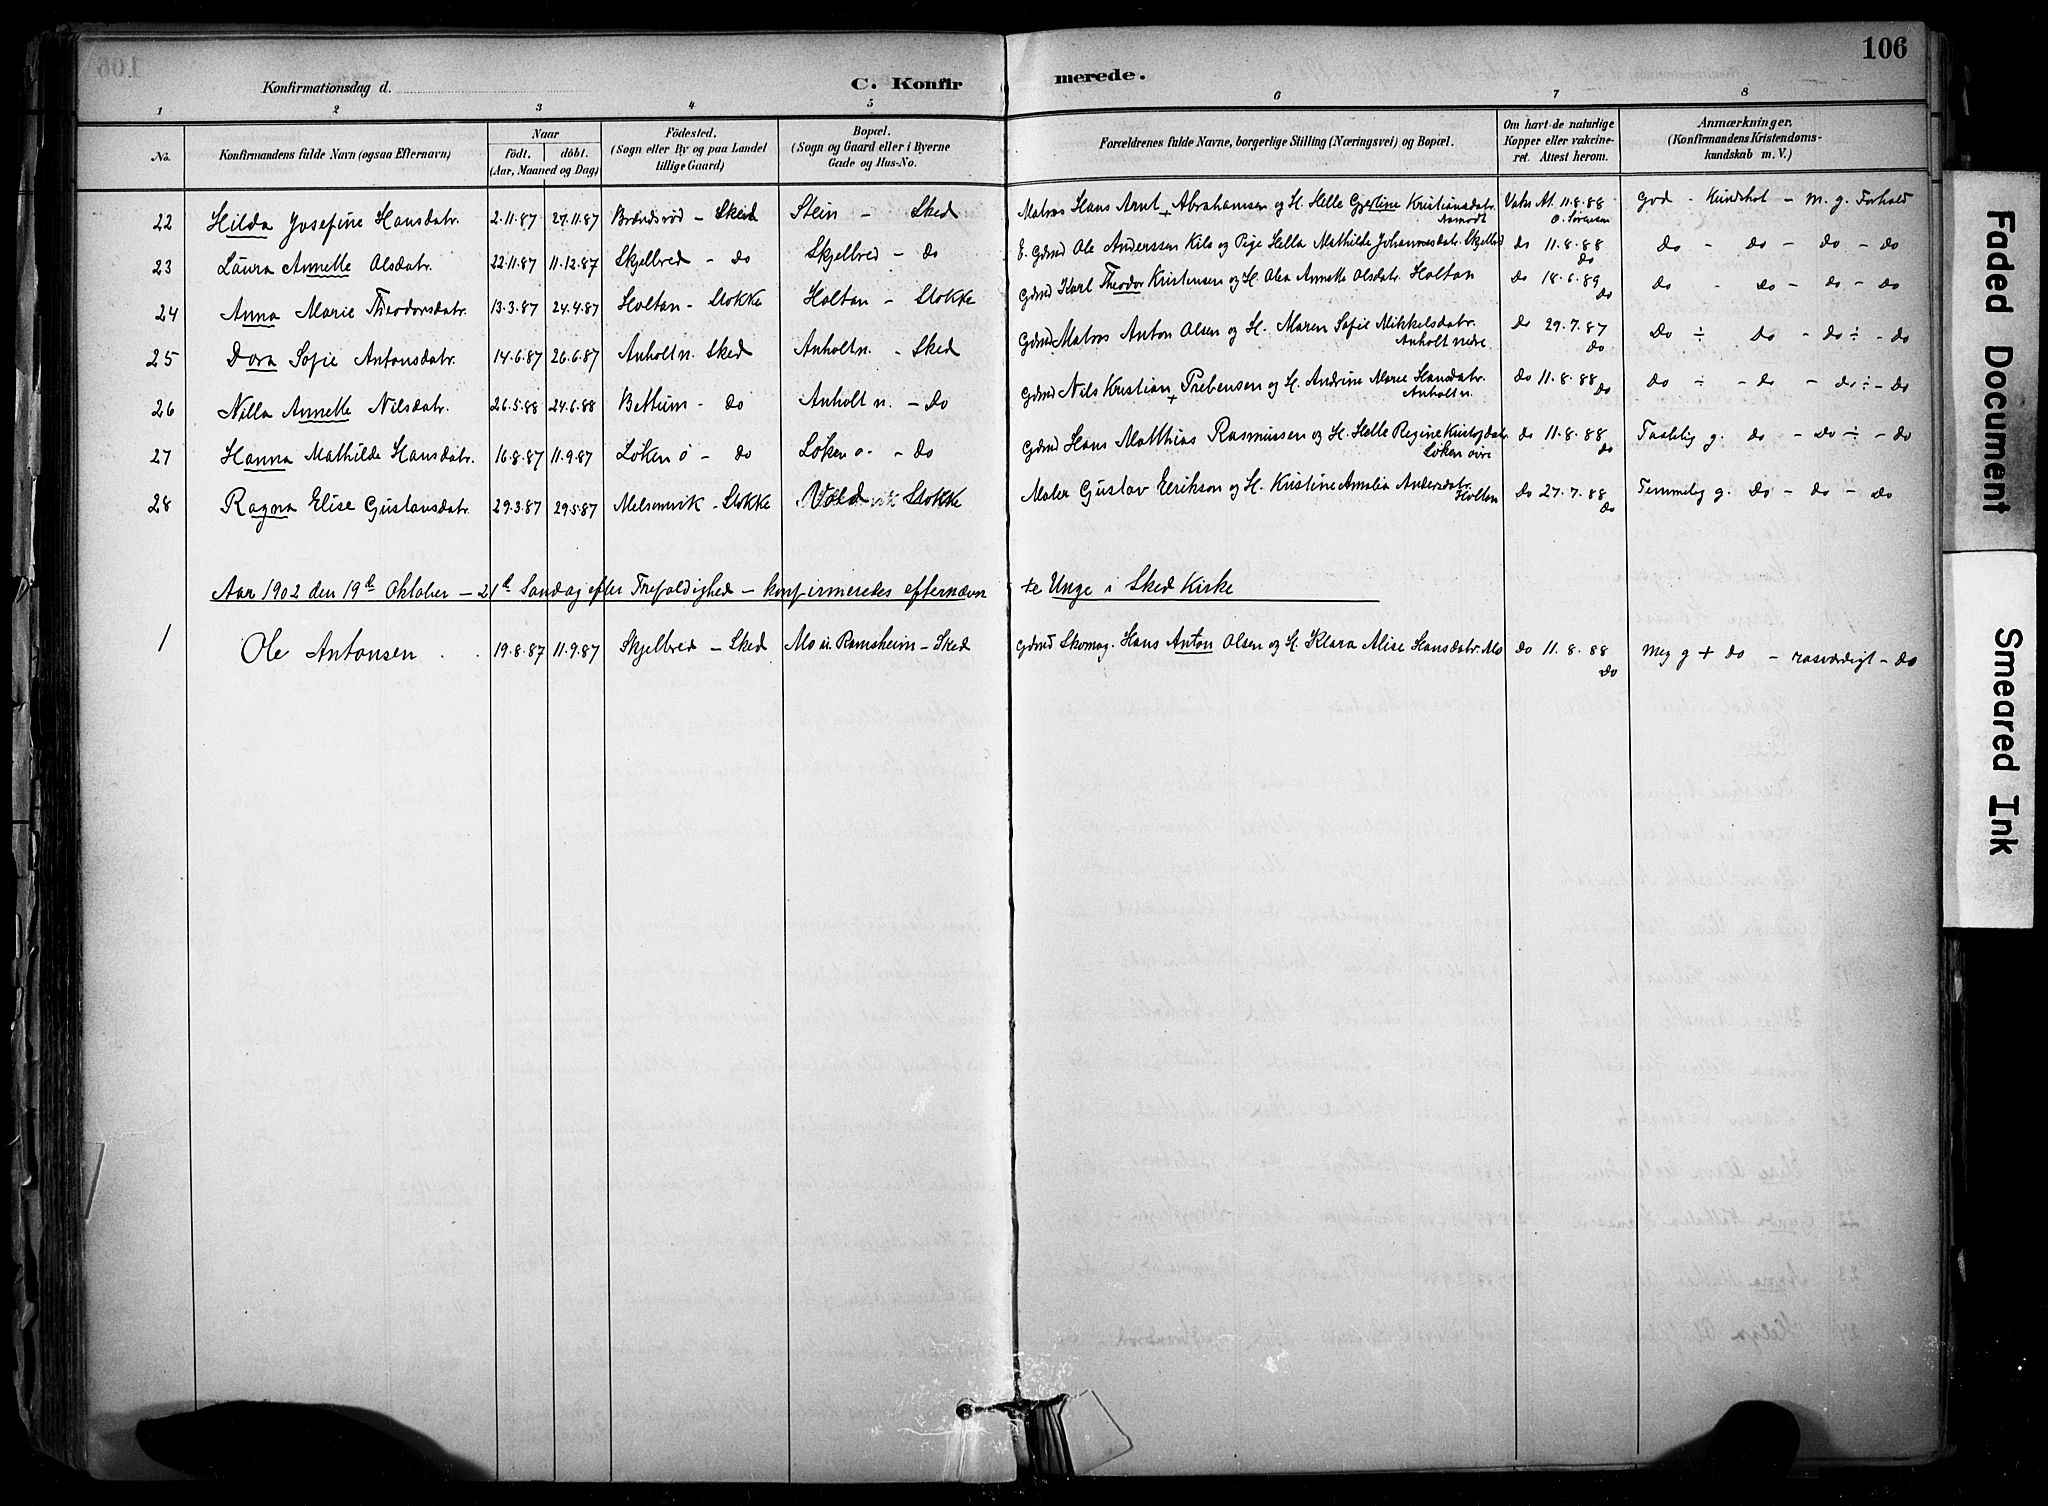 106
Konfirmationsdag d.
C. Konfirmerede.
1 2 3 4 5 6 7 8
No.
Konfirmandens fulde Navn (ogsaa Efternavn)
Naar
födt. döbt.
(Aar, Maaned og Dag)
Födested.
(Sogn eller By og paa Landet
tillige Gaard)
Bopæl.
(Sogn og Gaard eller i Byerne
Gade og Hus-No.
Forældrenes fulde Navne, borgerlige Stilling (Næringsvei) og Bopæl.
Om havt de naturlige
Kopper eller vakcine-
ret. Attest herom.
Anmærkninger.
(Konfirmandens Kristendoms-
kundskab m. V.)
22 Hilda Josefine Hansdatr. 2.11.87 27.11.87 Brændsröd - Sked Stein - Sked Matros Hans Arnt Abrahamsen og H. Helle Gjertine Kristiansdatr. Vakc At. 11.8.88 God - Kundskab - m. g. Forhold
O. Sörensen
23 Laura Annette Olsdatr. 22.11.87 11.12.87 Skjelbred - do Skjelbred - do E. Gdmd Ole Anderssen Kile og Pige Hella Mathilde Johannesdatr. Skjelbred do 11.8.88 do - do - do - do
do
24 Anna Marie Theodorsdatr. 13.3.87 24.4.87 Holtan - Stokke Holtan - Stokke Gdmd Karl Theodor Kristensen og H. Olea Annette Olsdatr. Holtan do 18.6.89 do - do - do - do
do
25 Dora Sofie Antonsdatr. 14.6.87 26.6.87 Anholt n. Sked Anholt n. - Sked Gdmd Matros Anton Olsen og H. Maren Sofie Mikkelsdatr. do 29.7.87 do ÷ do - do ÷ - do
Anholt nedre do
26 Nilla Annette Nilsdatr. 26.5.88 24.6.88 Bettum - do Anholt n. - do Gdmd Nils Kristian Prebensen og H. Andrine Marie Hansdatr. do 11.8.88 do ÷ - do - do ÷ - do
Anholt n. do
27 Hanna Mathilde Hansdatr. 16.8.87 11.9.87 Löken ö - do Löken ö. - do Gdmd Hans Matthias Rasmussen og H. Helle Regine Kristofdatr. do 11.8.88 Taalelig g. do - do ÷ - do
Löken övre do
28 Ragna Elise Gustavsdatr. 29.3.87 29.5.87 Melsomvik - Stokke Stokke Maler Gustav Eerikson og H. Kristine Amalia Andersdatr. do 27.7.88 Temmelig g. do - do - do
Holtan do
Aar 1902 den 19de Oktober - 21de Söndag efter Trefoldighed - konfirmeredes efternævnte Unge i Sked Kirke
1 Ole Antonsen 19.8.87 11.9.87 Skjelbred - Sked Mo u. Ramsheim - Sked Gdmd Skomag. Hans Anton Olsen og H. Klara Alise Hansdatr. Mo do 11.8.88 Meg g + do - rosværdigt - do
do
Faded Document
Smeared Ink